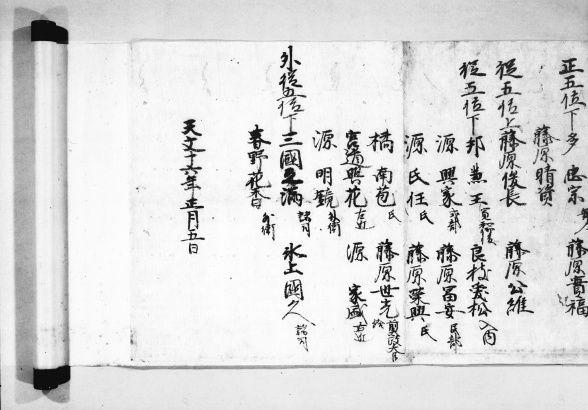 正五位下多忠宗 藤原貴福
藤原晴資
従五位上藤原俊長 藤原公維
従五位下邦並王 良枝安松 内
源興家 兵部 藤原冨安 民部
源氏任 氏 藤原栄興 氏
橘南苞 氏 藤原世光
宮道興花 左近 源家盛 右近
源明鏡 外衛
外従五位下三國満 諸司 氷上國久 諸司
春野花香 外衛
天文十六年正月五日